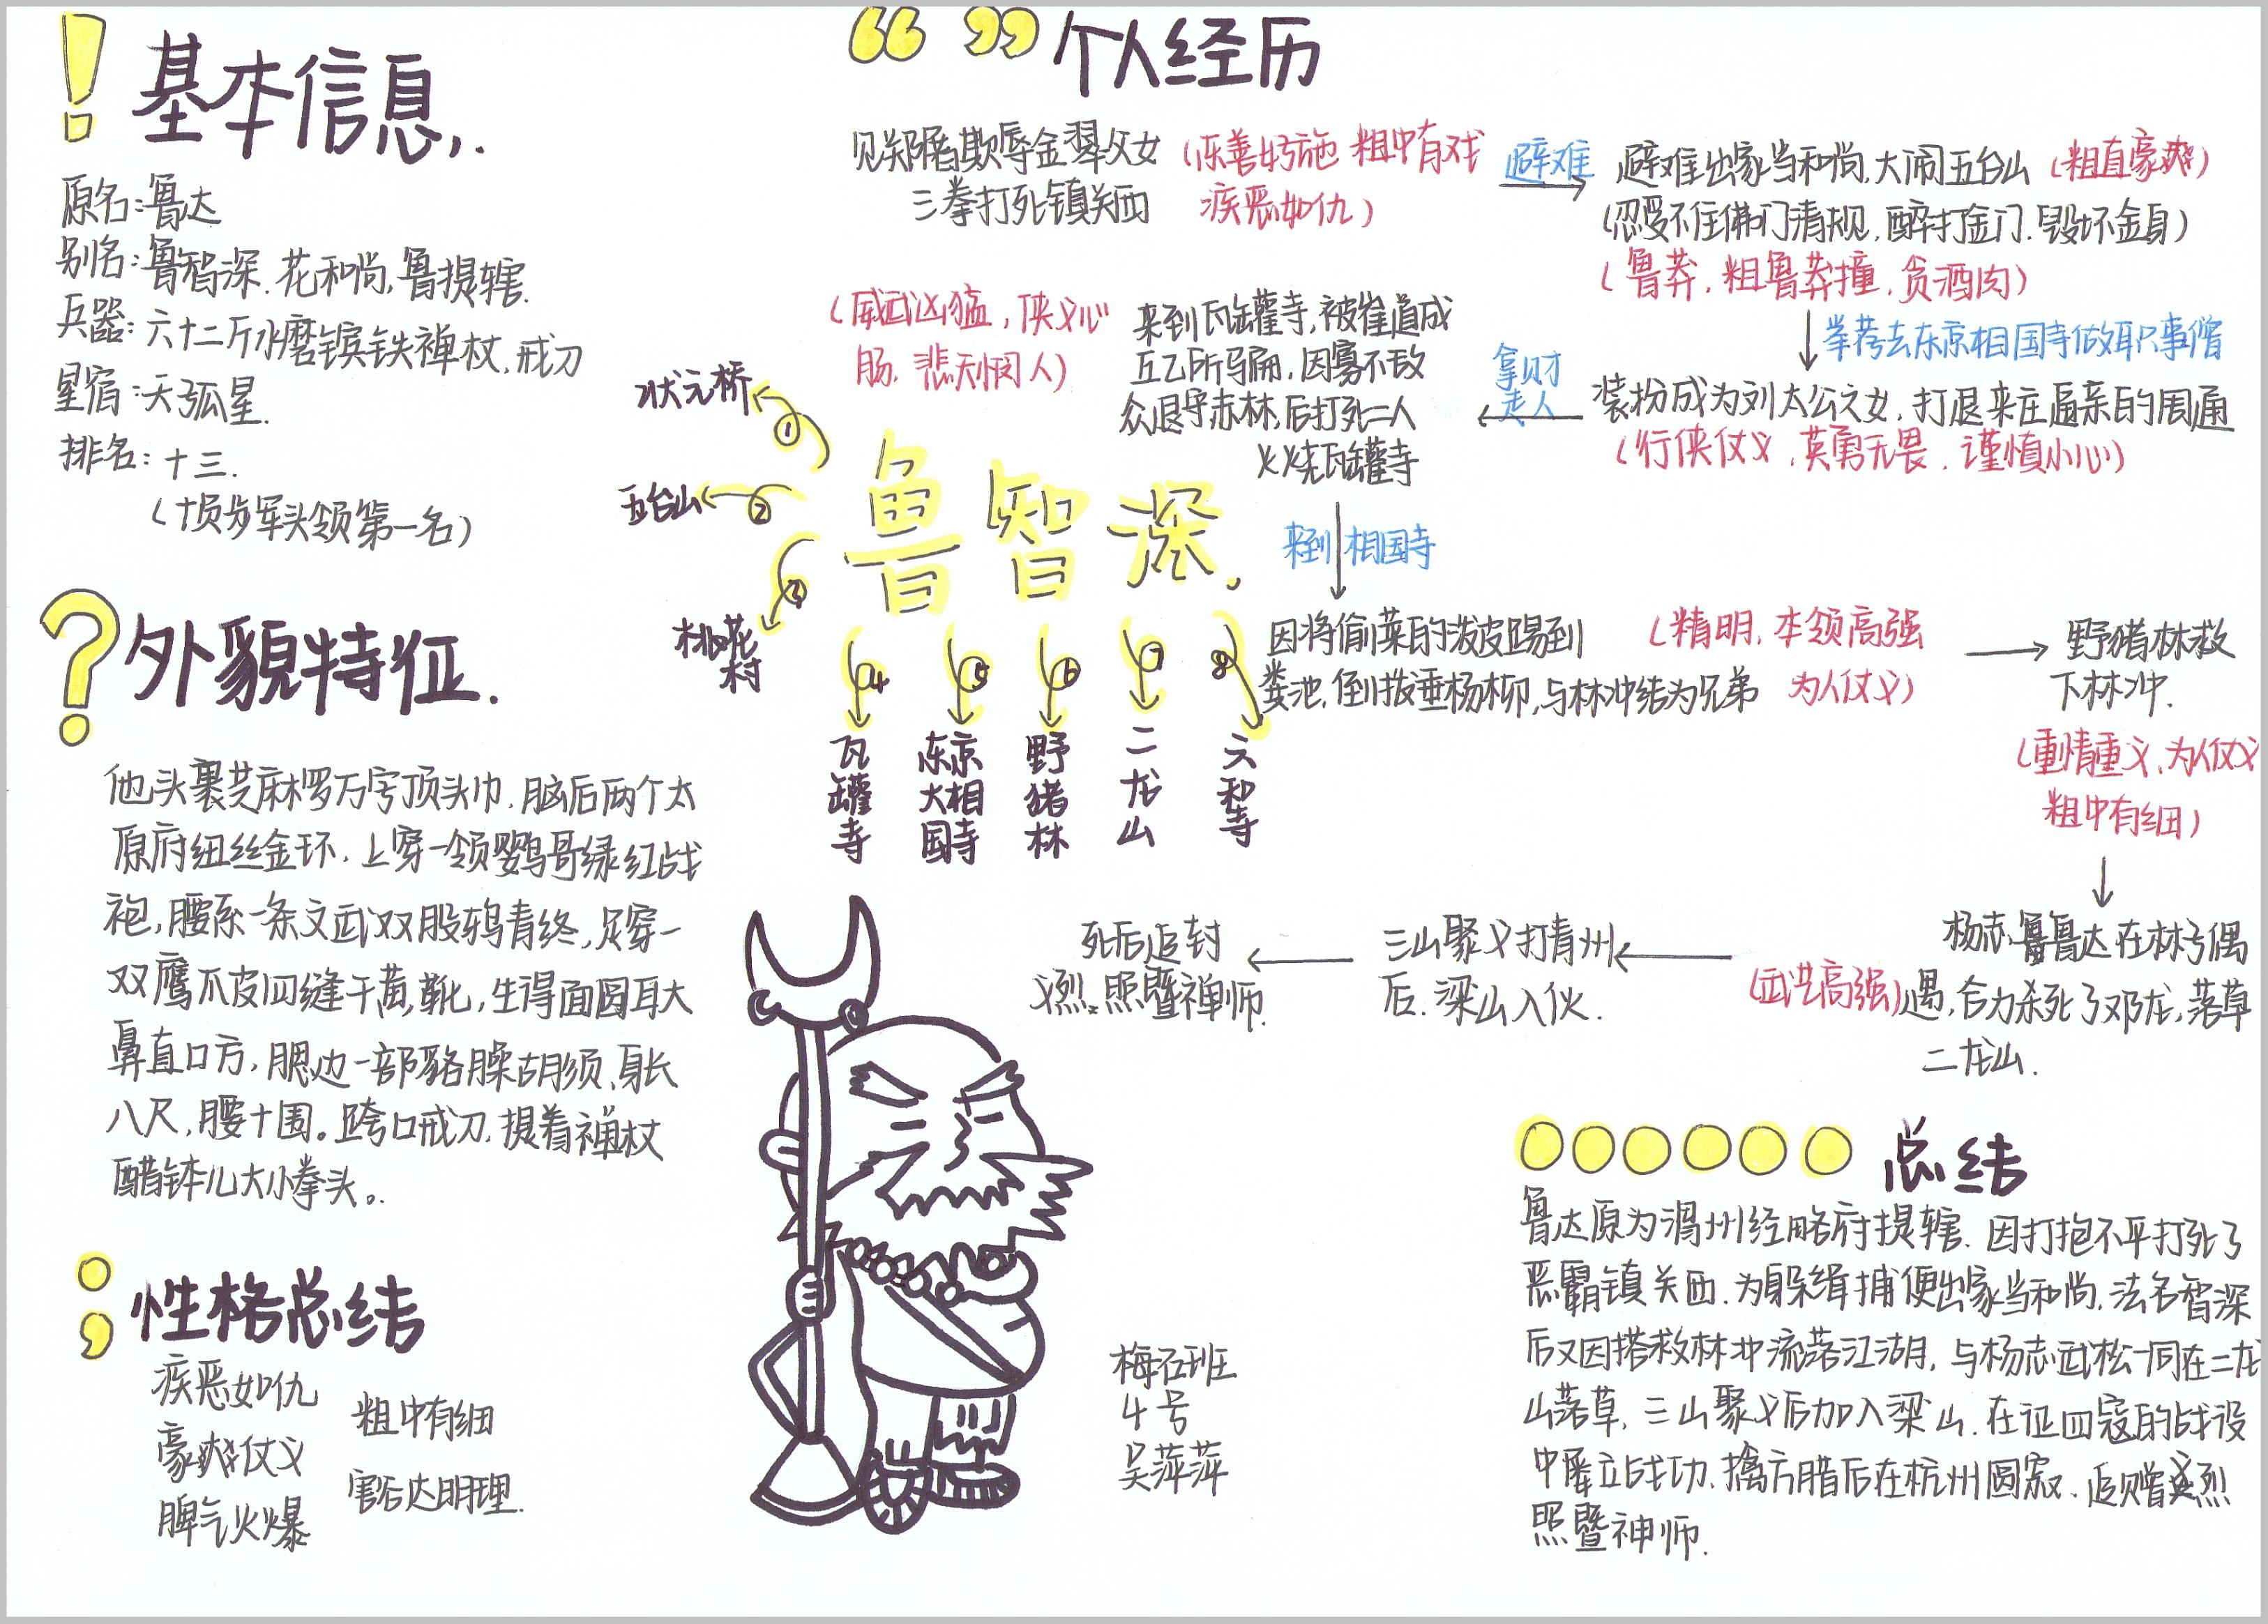 基本信息
原名:鲁达
别名:鲁智深.花和尚,鲁提辖.
兵器:六十二斤水磨镔铁禅杖,戒刀
星宿:天孤星.
排名:十三.
(十员步军头领第一名)
外貌特征.
他头裹芝麻罗万字顶头巾,脑后两个太
原府纽丝金环.上穿一领鹦哥绿纻战
袍,腰系一条文武双股鸦青绦,足穿一
双鹰爪皮四缝干黄靴,生得面圆耳大
鼻直口方,腮边一部貉臊胡须,身长
八尺,腰十围。跨口戒刀,提着禅杖
醋钵儿大小拳头。
性格总结
疾恶如仇
豪爽仗义
脾气火爆
粗中有细
明理.
个人经历
见郑屠欺辱金翠父女
三拳打死镇关西
(乐善好施 粗中有
疾恶如仇)
避难
避难出家当和尚,大闹五台山(粗直豪爽)
(忍受不住佛门清规,醉打金门.毁坏金身)
(鲁莽,粗鲁莽撞,贪酒肉)
举荐去东京相国寺做职事僧
装扮成为刘太公之女,打退来庄逼亲的周通
(行侠仗义,英勇无畏.谨慎小心)
拿财
走人
来到瓦罐寺,被崔道成
丘乙所骗,因寡不敌
众退守赤林,后打死二人
火烧瓦罐寺
(威武凶猛,侠义心
肠.悲天悯人)
来到相国寺
因将偷菜的泼皮踢到
粪池,倒拨垂杨柳,与林冲结为兄弟
(精明,本领高强
为人仗义)
野猪林救
下林冲.
(重情重义,为人仗义
粗中有细)
杨志,鲁达在林偶
遇,合力杀死了邓龙,落草
二龙山.
(武艺高强)
三山聚义打青州
后.梁山入伙.
死后追封
义烈照暨禅师.
鲁智深.
①
状元桥
②
五台山
③
桃花
村
④
瓦罐寺
⑤
东京
大相
国寺
⑥
野猪林
⑦
二龙山
⑧
六和寺
梅石班
4号
吴萍萍
总结
鲁达原为渭州经略府提辖.因打抱不平打死了
恶霸镇关西.为躲缉捕便出家当和尚,法名智深
后又因搭救林冲流落江湖,与杨志武松一同在二龙
山落草,三山聚义后加入梁山.在征四寇的战役
中屡立战功.擒方腊后在杭州圆寂.追赠义烈
照暨神师.